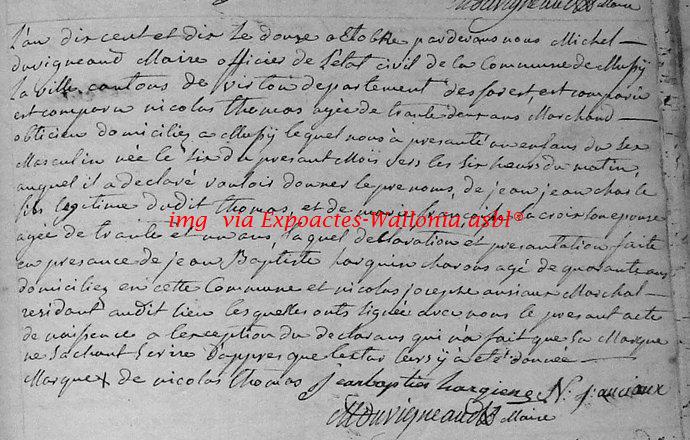 Mduvigneaud Maire
L'an dix cent et dix le douze octobre pardevans nous Michel
duvigneaud Maire officier de L'etat civil de la Commune de Mussÿ
La ville cantons de virton departement des forest, est comparu
est comparu nicolas thomas agée de trante deux ans Marchand
obticien domiciliez a Mussÿ lequel nous à presanté un enfans du sex
Masculin née le six du presant Mois vers les six heurs du matin,
auquel il a declaré vouloir donner le prenoms, de jean, jean charle
fils legetime dudit thomas, et de la croix son epouse
img via Expoactes-Wallonia.asbl®
agée de trante et un ans, laquel declaration et presantation faite
en presance de jean Baptiste charons agé de quarante ans
domiciliez en cette Commune et nicolas josephe Marchal
residant audit lieu lesquelles onts signée avec nous le presant acte
de naissence a lexception du declarans qui n'a fait que Sa Marque
ne Sachant Ecrire d'appres que lectur leurs ÿ à été donnée
Marque X de nicolas thomas jean baptiste N: j: anciaux
Mduvigneaud Maire